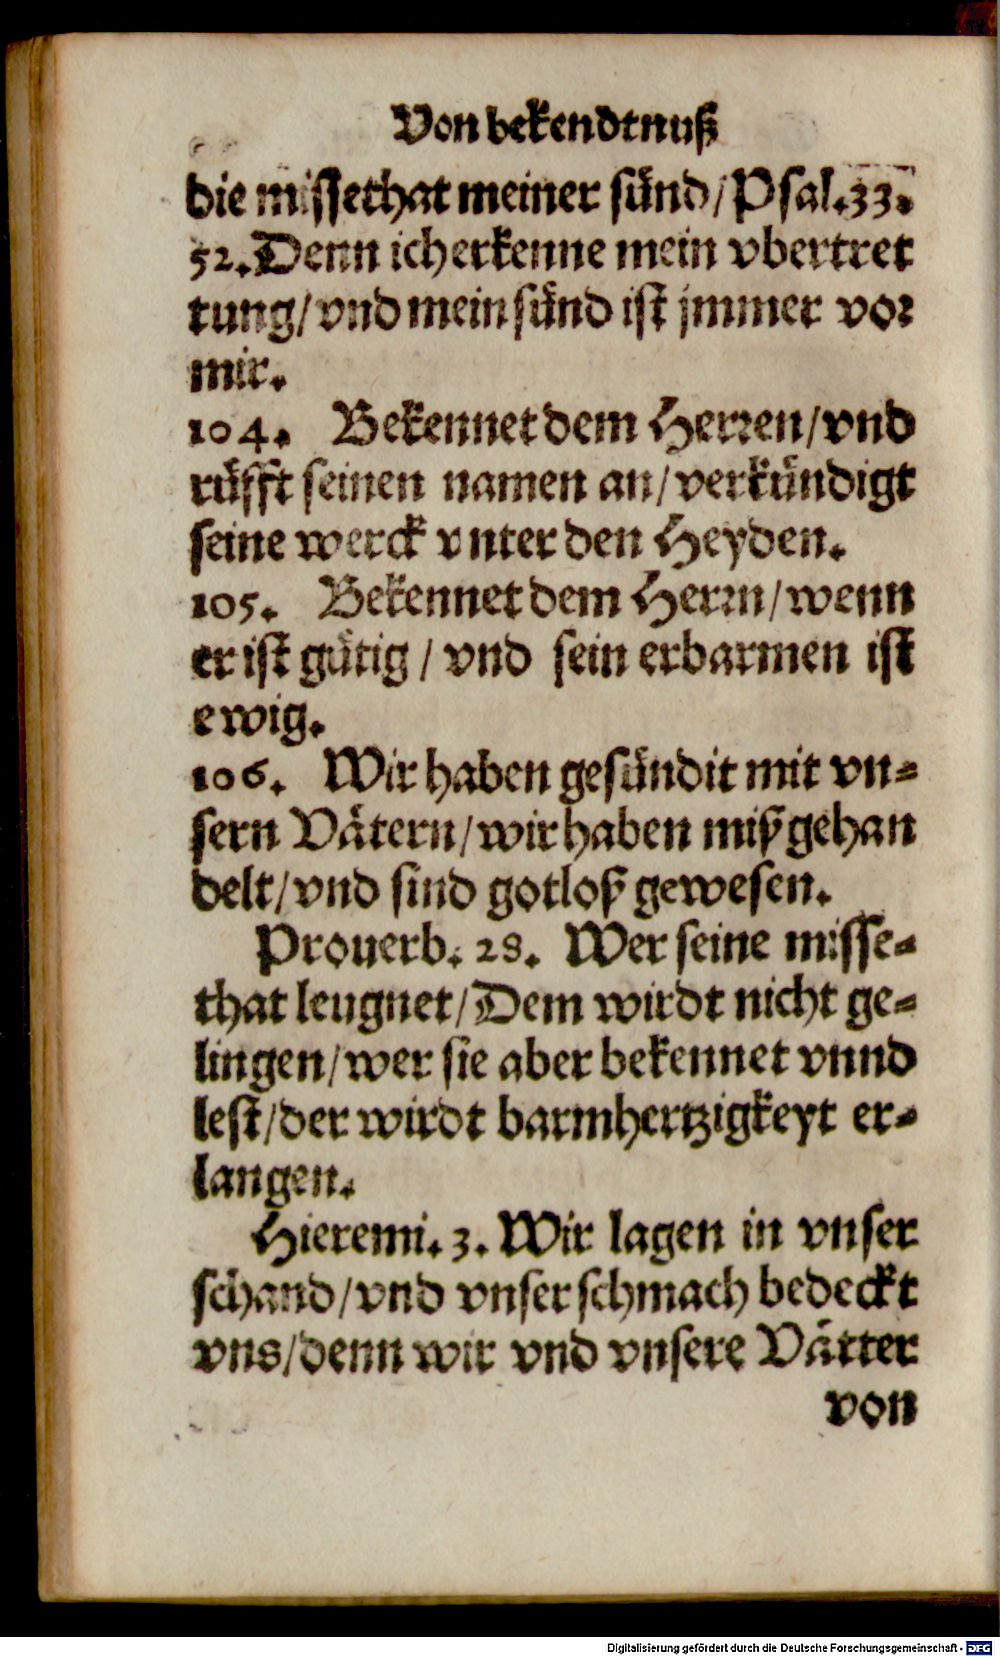 Von bekendtnuß
die missethat meiner sünd/Psal.33.
52. Denn ich erkenne mein vbertret
tung/vnd mein sünd ist jmmer vor
mir.
104. Bekennet dem Herren/vnd
rüfft seinen namen an/verkündigt
seine werck vnter den Heyden.
105. Bekennet dem Herrn/wenn
er ist gütig/vnd sein erbarmen ist
ewig.
106. Wir haben gesündit mit vn-
sern Vätern/wir haben mißgehan
delt/vnd sind gotloß gewesen.
Prouerb. 28. Wer seine misse-
that leugnet/Dem wirdt nicht ge-
lingen/wer sie aber bekennet vnnd
lest/der wirdt barmhertzigkeyt er-
langen.
Hieremi. 3. Wir lagen in vnser
schand/vnd vnser schmach bedeckt
vns/denn wir vnd vnsere Vätter
von
Digitalisierung gefördert durch die Deutsche Forschungsgemeinschaft - DFG